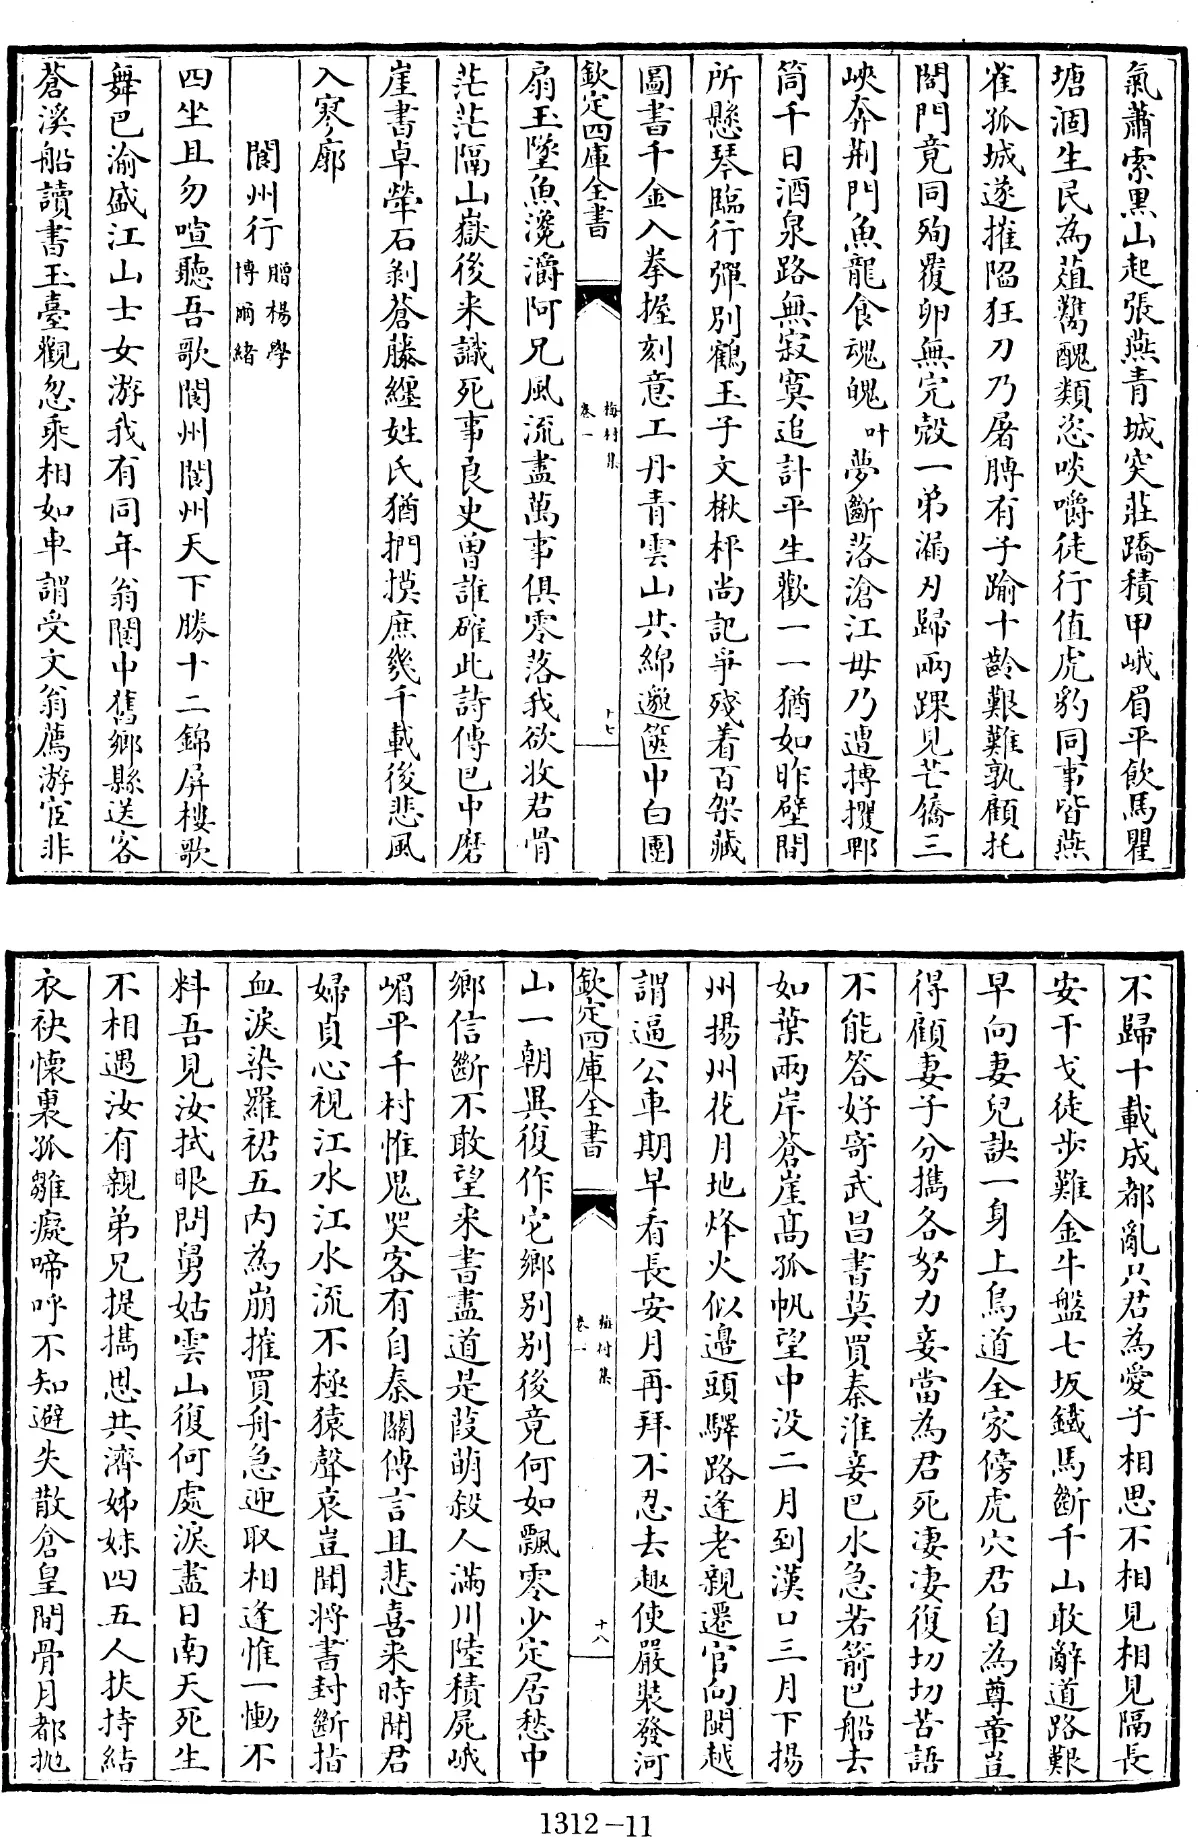 氣蕭索黑山起張燕青城突莊蹻積甲峨眉平飲馬瞿
塘涸生民為葅鱠醜類恣啖嚼徒行值虎豹同事皆燕
雀孤城遂摧陷狂刀乃屠膊有子踰十齡艱難孰顧托
闔門竟同殉覆卵無完殼一弟漏刃歸兩踝見芒屩三
峽奔荆門魚龍食魂魄叶夢斷落滄江母乃遭搏攫郫
筒千日酒泉路無寂寞追計平生歡一一猶如昨壁間
所懸琴臨行彈别鶴玉子文楸枰尚記爭殘着百架藏
圖書千金入拳握刻意工丹青雲山共綿邈篋中白團
欽定四庫全書
梅村集
卷一
十七
扇玉墜魚瀺灂阿兄風流盡萬事俱零落我欲收君骨
茫茫隔山嶽後来識死事良史曾誰確此詩傳巴中磨
崖書卓犖石剝蒼藤纏姓氏猶捫摸庶幾千載後悲風
入寥廓
閬州行贈楊學博爾緒
四坐且勿喧聽吾歌閬州閬州天下勝十二錦屏樓歌
舞巴渝盛江山士女游我有同年翁閬中舊鄉縣送客
蒼溪船讀書玉臺觀忽乘相如車謂受文翁薦游宦非
不歸十載成都亂只君為愛子相思不相見相見隔長
安干戈徒步難金牛盤七坂鐵馬斷千山敢辭道路艱
早向妻兒訣一身上鳥道全家傍虎穴君自為尊章豈
得顧妻子分攜各努力妾當為君死凄凄復切切苦語
不能答好寄武昌書莫買秦淮妾巴水急若箭巴船去
如葉兩岸蒼崖高孤帆望中没二月到漢口三月下揚
州揚州花月地烽火似邊頭驛路逢老親遷官向閩越
謂逼公車期早看長安月再拜不忍去趣使嚴裝發河
欽定四庫全書
梅村集
卷一
十八
山一朝異復作它鄉别别後竟何如飄零少定居愁中
鄉信斷不敢望来書盡道是葭萌殺人滿川陸積屍峨
嵋平千村惟鬼哭客有自秦關傳言且悲喜来時聞君
婦貞心視江水江水流不極猿聲哀豈聞將書封斷指
血淚染羅裙五内為崩摧買舟急迎取相逢惟一慟不
料吾見汝拭眼問舅姑雲山復何處淚盡日南天死生
不相遇汝有親弟兄提攜思共濟姊妹四五人扶持結
衣袂懷裏孤雛癡啼呼不知避失散倉皇間骨月都抛
1312-11